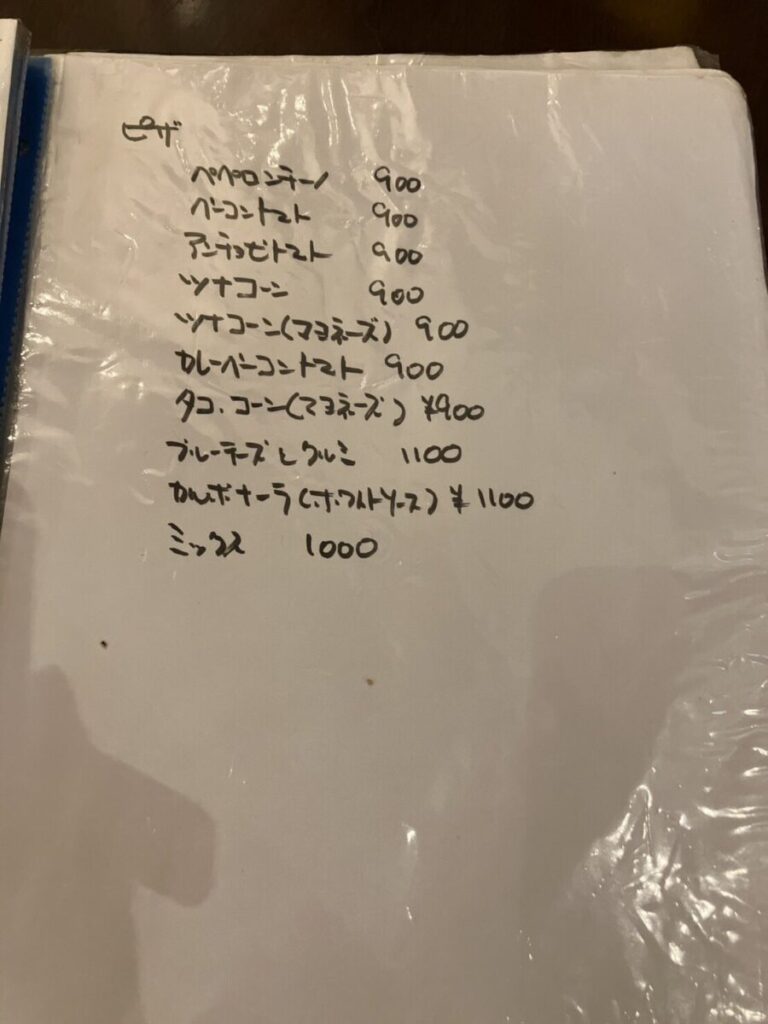 ピザ
ペペロンチーノ 900
ベーコントマト 900
アンチョビトマト 900
ツナコーン 900
ツナコーン(マヨネーズ) 900
カレーベーコントマト 900
タコ、コーン(マヨネーズ) ¥900
ブルーチーズとクルミ 1100
カルボナーラ(ホワイトソース) ¥1100
ミックス 1000